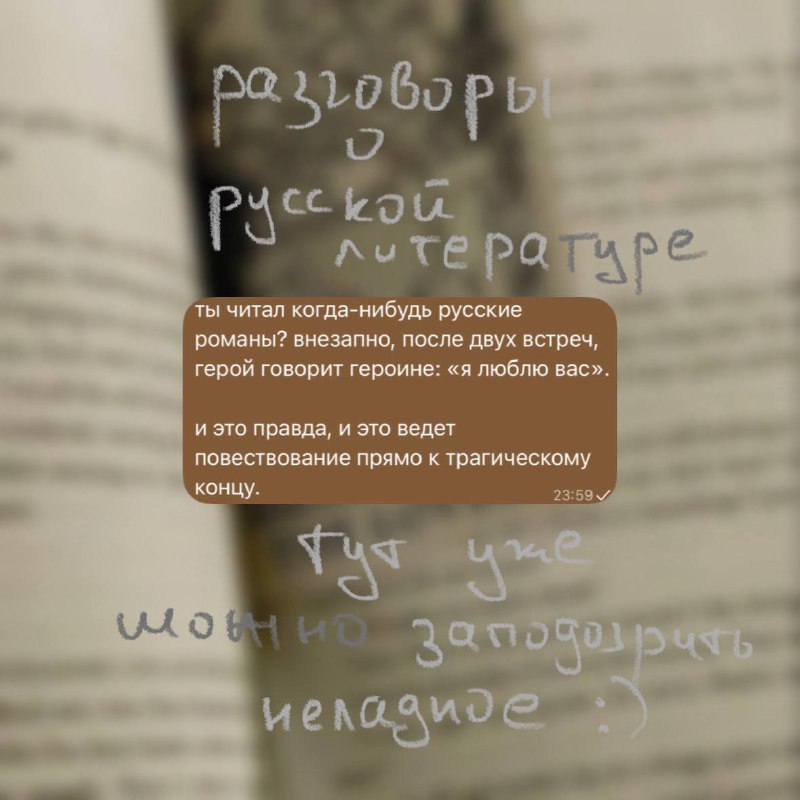 разговоры
о
русской
литературе
ты читал когда-нибудь русские
романы? внезапно, после двух встреч,
герой говорит героине: «я люблю вас».
и это правда, и это ведет
повествование прямо к трагическому
концу.
23:59
тут уже
можно заподозрить
неладное :)